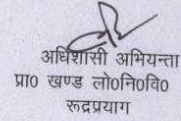 अधिशासी अभियन्ता
प्रा0 खण्ड लो0नि0वि0
रूद्रप्रयाग